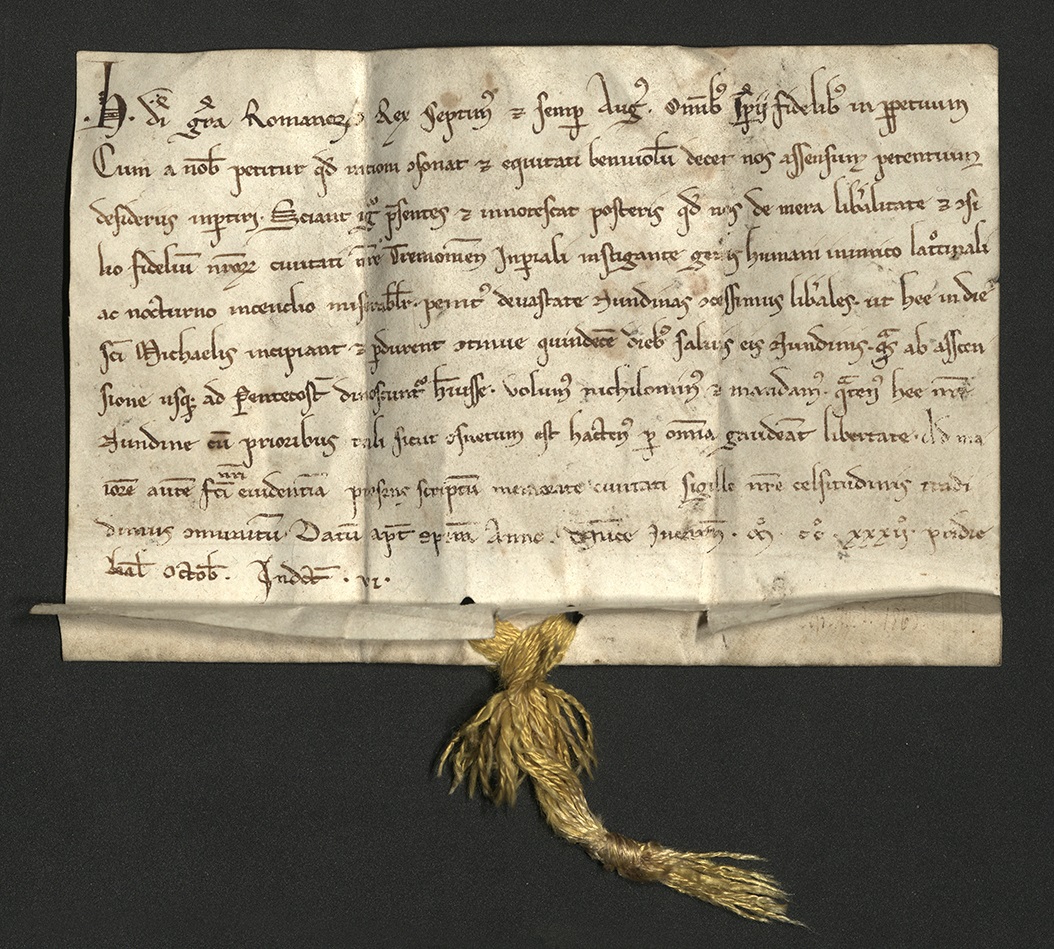 .H. di gra Romanorꝝ Rex Septimꝰ ⁊ semp Augꝰ. Omibꝰ Ipii fidelibꝰ in ꝑpetuum
Cum a nob petitur qd racioni ꝯsonat ⁊ equitati beniuolū decet nos assensum petentium
desideriis inꝑtiri. Sciant igͦ psentes ⁊ innotescat posteris qd nos de mera libalitate ⁊ ꝯsi
lio fideliū nroꝝ ciuitati nre Tremonien Inꝑiali instigante geꝰis humani inimico
ac nocturno incendio miserabilr penitꝰ deuastate Nundinas ꝯcessimus libales. ut hee in die
sci Michaelis incipiant ⁊ ꝑdurent ꝯtinue quindecē diebꝰ saluis eis Nundinis. que ab asscen
sione usqꝫ ad Pentecost dinoscuntꝰ huisse. Volumꝰ nichilominꝰ ⁊ mandamꝰ. qtenꝰ hee nre
Nundine cū prioribus tali sicut ꝯsuetum est hactenꝰ ꝑ omnia gaudeāt libertate. Ad ma
iorē autē fci nri euidentia presens scriptū memorate ciuitati sigillo nre celsitudinis tradi
dimus ꝯmunitū. Datū apt Anno Mͦ. cͦcͦ. xxxiiͦ. pridie
kal Octob. Indict. vi.